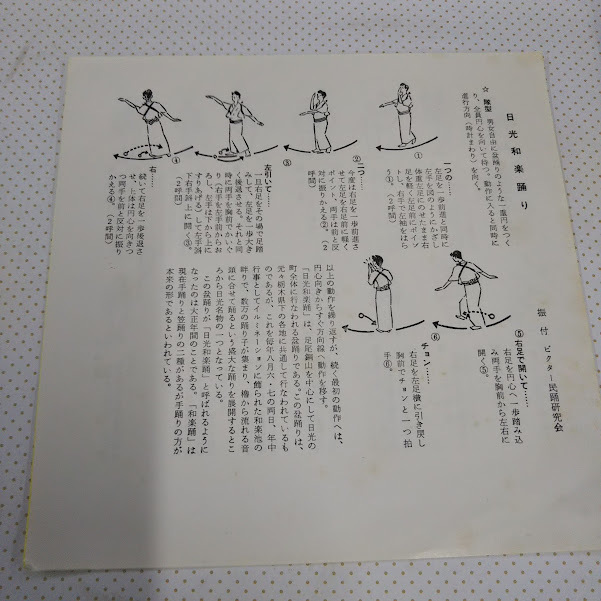 日光和楽踊り
振付 ビクター民踊研究会
☆隊型 男女自由に盆踊りのような一重円をつく
り、全員円心を向いて待つ。動作に入ると同時に
進行方向(時計まわり)を向く。
①
一つの……
左足を一歩前進と同時に
左手を図のようにかざし
体重左足にのせたまま右
足を軽く左足前にポイン
トし、右手で左袖をはら
う①。(2呼間)
②
二つ……
今度は右足を一歩前進さ
せて左足を右足前に軽く
ポイント、両手は前と反
対に振りかえる②。(2
呼間)
③
左引いて……
一旦右足をその場で足踏
みして、左足を一歩大き
く後退させる。それと同
時に両手を胸前でかいぐ
り(右手を左手前からお
ろし、左手は下から上に
すりあげ)して左手斜
下右手斜上に開く③。
(2呼間)
④
右……
続いて右足を一歩後退さ
せ、上体は円心を向きつ
つ両手を前と反対に振り
かえる④。(2呼間)
⑤右足で開いて……
右足を円心へ一歩踏み込
み両手を胸前から左右に
開く⑤。
⑥
チョン……
右足を左足横に引き戻し
胸前でチョンと一つ拍
手⑥。
以上の動作を繰り返すが、続く最初の動作へは、
円心向きからすぐ方向線へ動作を移す。
「日光和楽踊」は、足尾銅山を中心にして日光の
町全体に行なわれる盆踊りである。この盆踊りは、
元々栃木県下の各地に共通して行なわれているも
のであるが、これを毎年八月六・七の両日、年中
行事としてイルミネーションに飾られた和楽池の
畔りで、数万の踊り子が集まり、櫓から流れる音
頭に合せて踊るという盛大な踊りを展開するとこ
ろから日光名物の一つとなっている。
この盆踊りが「日光和楽踊」と呼ばれるように
なったのは大正年間のことである。「和楽踊」は
現在手踊りと笠踊りの二種があるが手踊りの方が
本来の形であるといわれている。